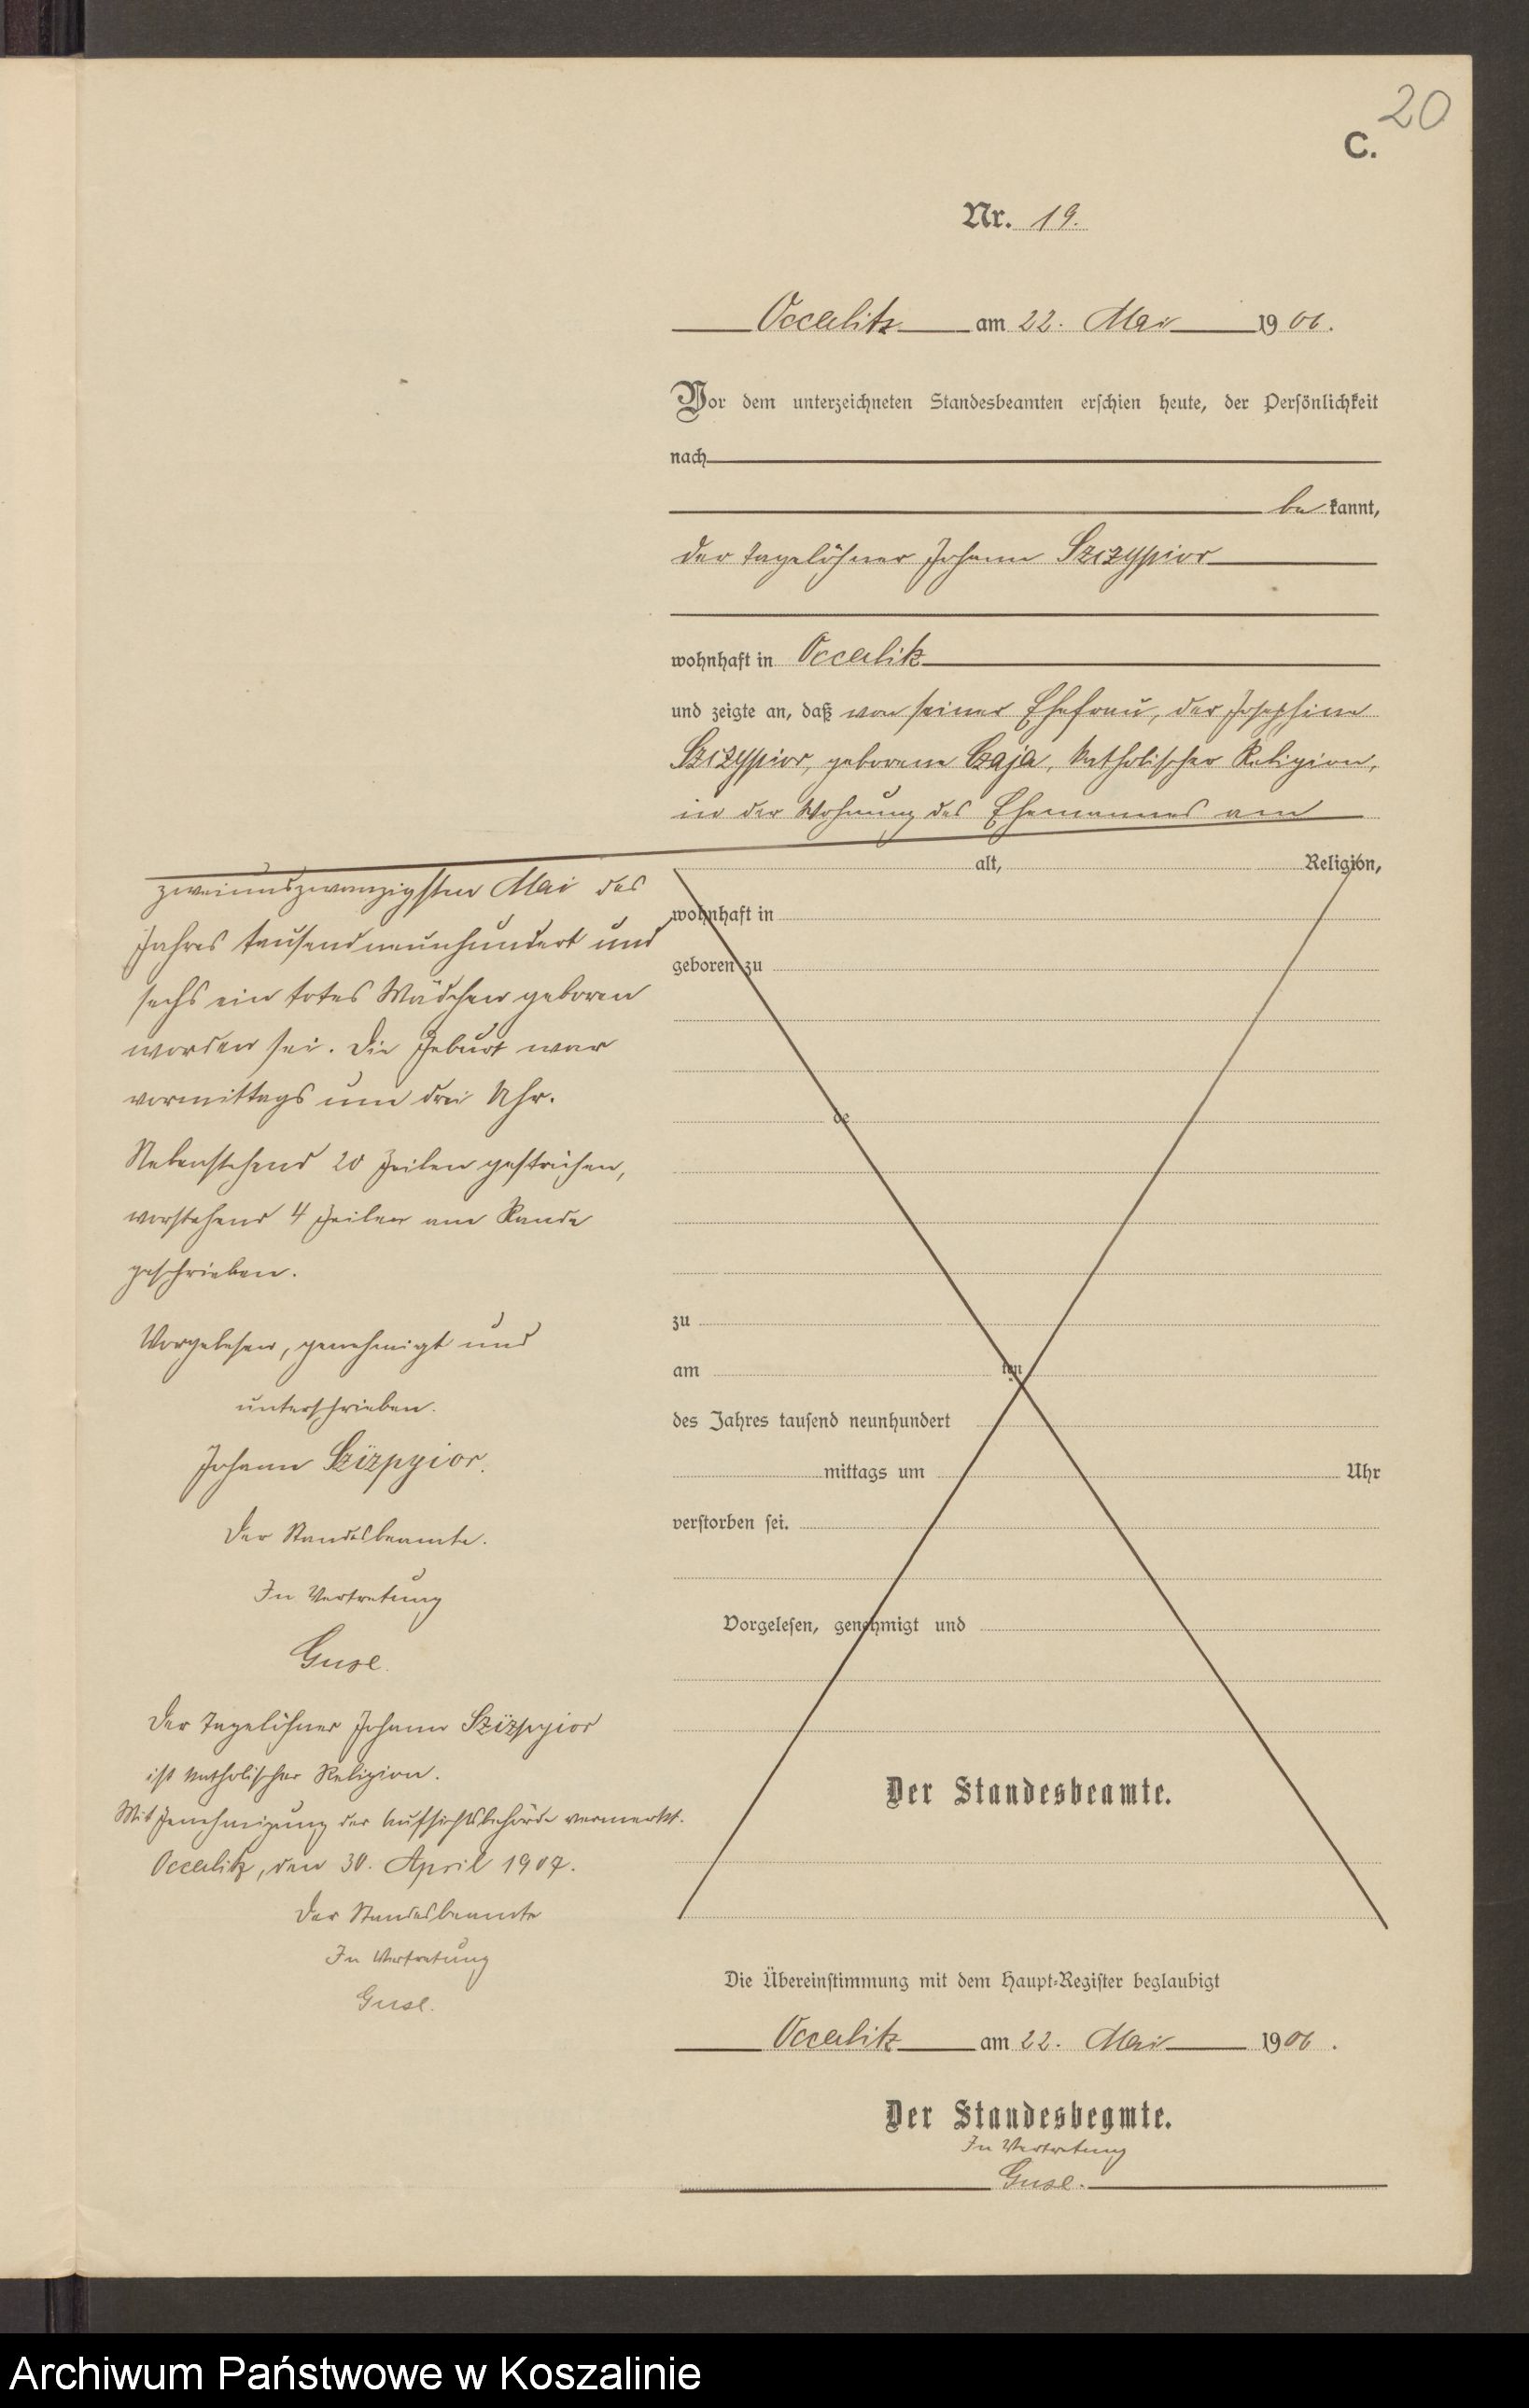 20
C.
Nr. 19.
Occalitz am 22. Mai 1906.
Vor dem unterzeichneten Standesbeamten erschien heute, der Persönlichkeit
nach
be kannt,
der Tagelöhner Johann Szczyppior
wohnhaft in Occalitz
und zeigte an, daß von seiner Ehefrau, der Josephine
Szczyppior, geborene Czaja, katholischer Religion,
in der Wohnung des Ehemannes am
alt, Religion,
zweiundzwanzigsten Mai des
wohnhaft in
Jahres tausendneunhundert und
geboren zu
sechs ein totes Mädchen geboren
worden sei. Die Geburt war
vormittags um drei Uhr.
de
Nebenstehend 20 Zeilen gestrichen,
vorstehend 4 Zeilen am Rande
geschrieben.
zu
Vorgelesen, genehmigt und
am ten
unterschrieben.
des Jahres tausend neunhundert
Johann Szizpyior.
mittags um Uhr
Der Standesbeamte.
verstorben sei.
In Vertretung
Vorgelesen, genehmigt und
Guse.
Der Tagelöhner Johann Szizpyior
ist katholischer Religion.
Der Standesbeamte.
Mit Genehmigung der Aufsichtsbehörde vermerkt.
Occalitz, den 30. April 1907.
Der Standesbeamte
In Vertretung
Guse.
Die Übereinstimmung mit dem Haupt-Register beglaubigt
Occalitz am 22. Mai 1906.
Der Standesbeamte.
In Vertretung
Guse.
Archiwum Państwowe w Koszalinie